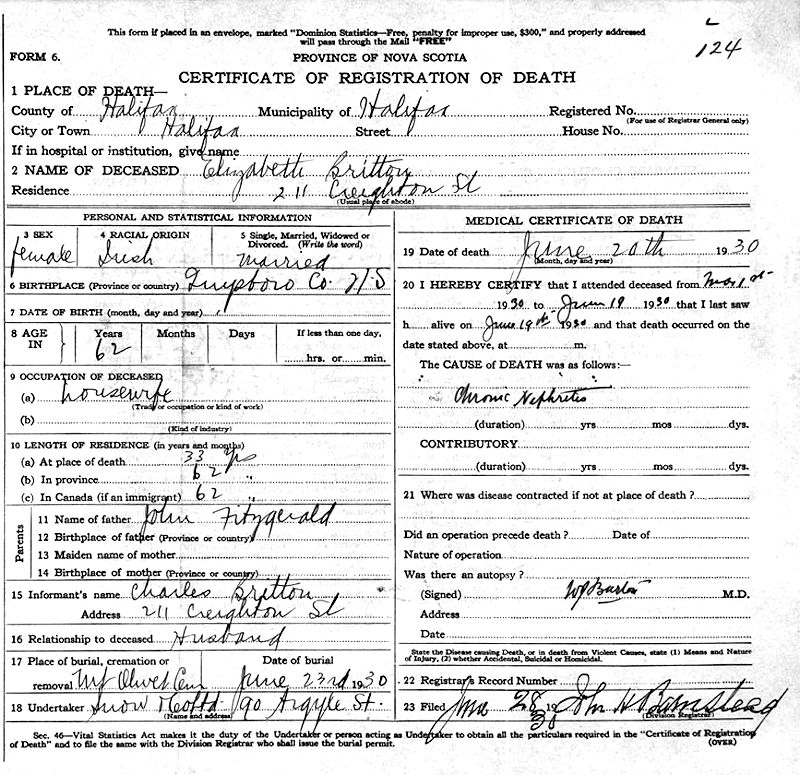 This form if placed in an envelope, marked "Dominion Statistics—Free, penalty for improper use, $300," and properly addressed
will pass through the Mail "FREE"
124
FORM 6.
PROVINCE OF NOVA SCOTIA
CERTIFICATE OF REGISTRATION OF DEATH
1 PLACE OF DEATH—
County of Halifax Municipality of Halifax Registered No.
(For use of Registrar General only)
City or Town Halifax Street House No.
If in hospital or institution, give name
2 NAME OF DECEASED Elizabeth Britton
Residence 211 Creighton St
(Usual place of abode)
PERSONAL AND STATISTICAL INFORMATION
3 SEX 4 RACIAL ORIGIN 5 Single, Married, Widowed or
Divorced. (Write the word)
female Irish Married
6 BIRTHPLACE (Province or country) Guysboro Co. N S
7 DATE OF BIRTH (month, day and year)
8 AGE IN Years Months Days If less than one day,
62 hrs. or min.
9 OCCUPATION OF DECEASED
(a) housewife
(Trade or occupation or kind of work)
(b)
(Kind of industry)
10 LENGTH OF RESIDENCE (in years and months)
(a) At place of death 33 yrs
(b) In province 62 "
(c) In Canada (if an immigrant) 62 "
Parents
11 Name of father John Fitzgerald
12 Birthplace of father (Province or country)
13 Maiden name of mother
14 Birthplace of mother (Province or country)
15 Informant's name Charles Britton
Address 211 Creighton St
16 Relationship to deceased Husband
17 Place of burial, cremation or Date of burial
removal Mt Olivet Cem June 23rd 1930
18 Undertaker Snow & Co Ltd 90 Argyle St.
(Name and address)
MEDICAL CERTIFICATE OF DEATH
19 Date of death June 20th 1930
(Month, day and year)
20 I HEREBY CERTIFY that I attended deceased from Mar 1st
1930 to June 19 1930 that I last saw
h alive on June 19th 1930 and that death occurred on the
date stated above, at m.
The CAUSE of DEATH was as follows:—
Chronic Nephritis
(duration) yrs mos dys.
CONTRIBUTORY
(duration) yrs. mos dys.
21 Where was disease contracted if not at place of death?
Did an operation precede death? Date of
Nature of operation
Was there an autopsy?
(Signed) M.D.
Address
Date
State the Disease causing Death, or in death from Violent Causes, state (1) Means and Nature
of Injury, (2) whether Accidental, Suicidal or Homicidal.
22 Registrar's Record Number
23 Filed June 28 1930 John H Barnstead
(Division Registrar)
Sec. 46—Vital Statistics Act makes it the duty of the Undertaker or person acting as Undertaker to obtain all the particulars required in the "Certificate of Registration
of Death" and to file the same with the Division Registrar who shall issue the burial permit.
(OVER)